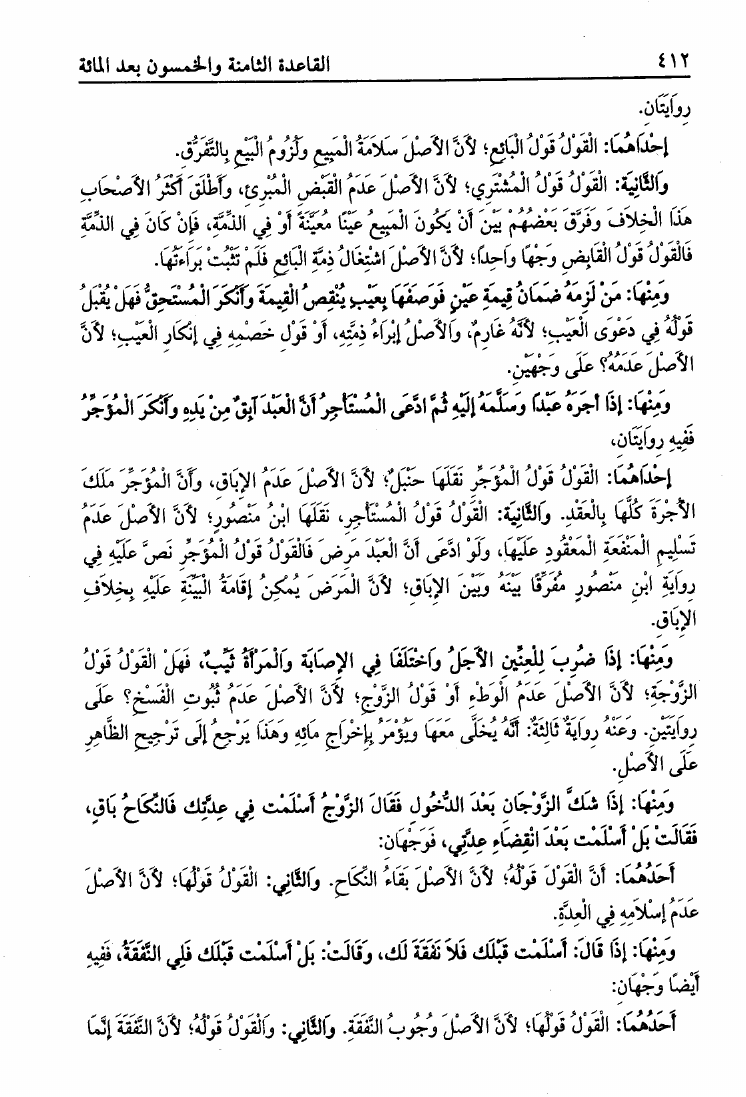 ٤١٢ القاعدة الثامنة والخمسون بعد المائة
رِوَايَتَانِ.
إِحْدَاهُمَا: الْقَوْلُ قَوْلُ الْبَائِعِ؛ لأَنَّ الأَصْلَ سَلَامَةُ الْمَبِيعِ وَلُزُومُ الْبَيْعِ بِالتَّفَرُّقِ.
وَالثَّانِيَةُ: الْقَوْلُ قَوْلُ الْمُشْتَرِي؛ لأَنَّ الأَصْلَ عَدَمُ الْقَبْضِ الْمُبْرِئِ، وَأَطْلَقَ أَكْثَرُ الأَصْحَابِ
هَذَا الْخِلاَفَ وَفَرَّقَ بَعْضُهُمْ بَيْنَ أَنْ يَكُونَ الْمَبِيعُ عَيْنًا مُعَيَّنَةً أَوْ فِي الذِّمَّةِ، فَإِنْ كَانَ فِي الذِّمَّةِ
فَالْقَوْلُ قَوْلُ الْقَابِضِ وَجْهًا وَاحِدًا؛ لأَنَّ الأَصْلَ اشْتِغَالُ ذِمَّةِ الْبَائِعِ فَلَمْ تَثْبُتْ بَرَاءَتُهَا.
وَمِنْهَا: مَنْ لَزِمَهُ ضَمَانُ قِيمَةِ عَيْنٍ فَوَصَفَهَا بِعَيْبٍ يُنْقِصُ الْقِيمَةَ وَأَنْكَرَ الْمُسْتَحِقُّ فَهَلْ يُقْبَلُ
قَوْلُهُ فِي دَعْوَى الْعَيْبِ؛ لأَنَّهُ غَارِمٌ، وَالأَصْلُ إِبْرَاءُ ذِمَّتِهِ، أَوْ قَوْلِ خَصْمِهِ فِي إِنْكَارِ الْعَيْبِ؛ لأَنَّ
الأَصْلَ عَدَمُهُ؟ عَلَى وَجْهَيْنِ.
وَمِنْهَا: إِذَا أجرَهُ عَبْدًا وَسَلَّمَهُ إِلَيْهِ ثُمَّ ادَّعَى الْمُسْتَأْجِرُ أَنَّ الْعَبْدَ آبِقٌ مِنْ يَدِهِ وَأَنْكَرَ الْمُؤَجِّرُ
فَفِيهِ رِوَايَتَانِ،
إِحْدَاهُمَا: الْقَوْلُ قَوْلُ الْمُؤَجِّرِ نَقَلَهَا حَنْبَلٌ؛ لأَنَّ الأَصْلَ عَدَمُ الإِبَاقِ، وَأَنَّ الْمُؤَجِّرَ مَلَكَ
الأُجْرَةَ كُلَّهَا بِالْعَقْدِ. وَالثَّانِيَةُ: الْقَوْلُ قَوْلُ الْمُسْتَأْجِرِ، نَقَلَهَا ابْنُ مَنْصُورٍ؛ لأَنَّ الأَصْلَ عَدَمُ
تَسْلِيمِ الْمَنْفَعَةِ الْمَعْقُودِ عَلَيْهَا، وَلَوْ ادَّعَى أَنَّ الْعَبْدَ مَرِضَ فَالْقَوْلُ قَوْلُ الْمُؤَجِّرِ نَصَّ عَلَيْهِ فِي
رِوَايَةِ ابْنِ مَنْصُورٍ مُفَرِّقًا بَيْنَهُ وَبَيْنَ الإِبَاقِ؛ لأَنَّ الْمَرَضَ يُمْكِنُ إِقَامَةُ الْبَيِّنَةِ عَلَيْهِ بِخِلاَفِ
الإِبَاقِ.
وَمِنْهَا: إِذَا ضُرِبَ لِلْعِنِّينِ الأَجَلُ وَاخْتَلَفَا فِي الإِصَابَةِ وَالْمَرْأَةُ ثَيِّبٌ، فَهَلْ الْقَوْلُ قَوْلُ
الزَّوْجَةِ؛ لأَنَّ الأَصْلَ عَدَمُ الْوَطْءِ أَوْ قَوْلُ الزَّوْجِ؛ لأَنَّ الأَصْلَ عَدَمُ ثُبُوتِ الْفَسْخِ؟ عَلَى
رِوَايَتَيْنِ. وَعَنْهُ رِوَايَةٌ ثَالِثَةٌ: أَنَّهُ يُخَلَّى مَعَهَا وَيُؤْمَرُ بِإِخْرَاجِ مَائِهِ وَهَذَا يَرْجِعُ إِلَى تَرْجِيحِ الظَّاهِرِ
عَلَى الأَصْلِ.
وَمِنْهَا: إِذَا شَكَّ الزَّوْجَانِ بَعْدَ الدُّخُولِ فَقَالَ الزَّوْجُ أَسْلَمْت فِي عِدَّتِك فَالنِّكَاحُ بَاقٍ،
فَقَالَتْ بَلْ أَسْلَمْت بَعْدَ انْقِضَاءِ عِدَّتِي، فَوَجْهَانِ:
أَحَدُهُمَا: أَنَّ الْقَوْلَ قَوْلُهُ؛ لأَنَّ الأَصْلَ بَقَاءُ النِّكَاحِ. وَالثَّانِي: الْقَوْلُ قَوْلُهَا؛ لأَنَّ الأَصْلَ
عَدَمُ إِسْلَامِهِ فِي الْعِدَّةِ.
وَمِنْهَا: إِذَا قَالَ: أَسْلَمْت قَبْلَك فَلاَ نَفَقَةَ لَك، وَقَالَتْ: بَلْ أَسْلَمْت قَبْلَك فَلِي النَّفَقَةُ، فَفِيهِ
أَيْضًا وَجْهَانِ:
أَحَدُهُمَا: الْقَوْلُ قَوْلُهَا؛ لأَنَّ الأَصْلَ وُجُوبُ النَّفَقَةِ. وَالثَّانِي: وَالْقَوْلُ قَوْلُهُ؛ لأَنَّ النَّفَقَةَ إِنَّمَا